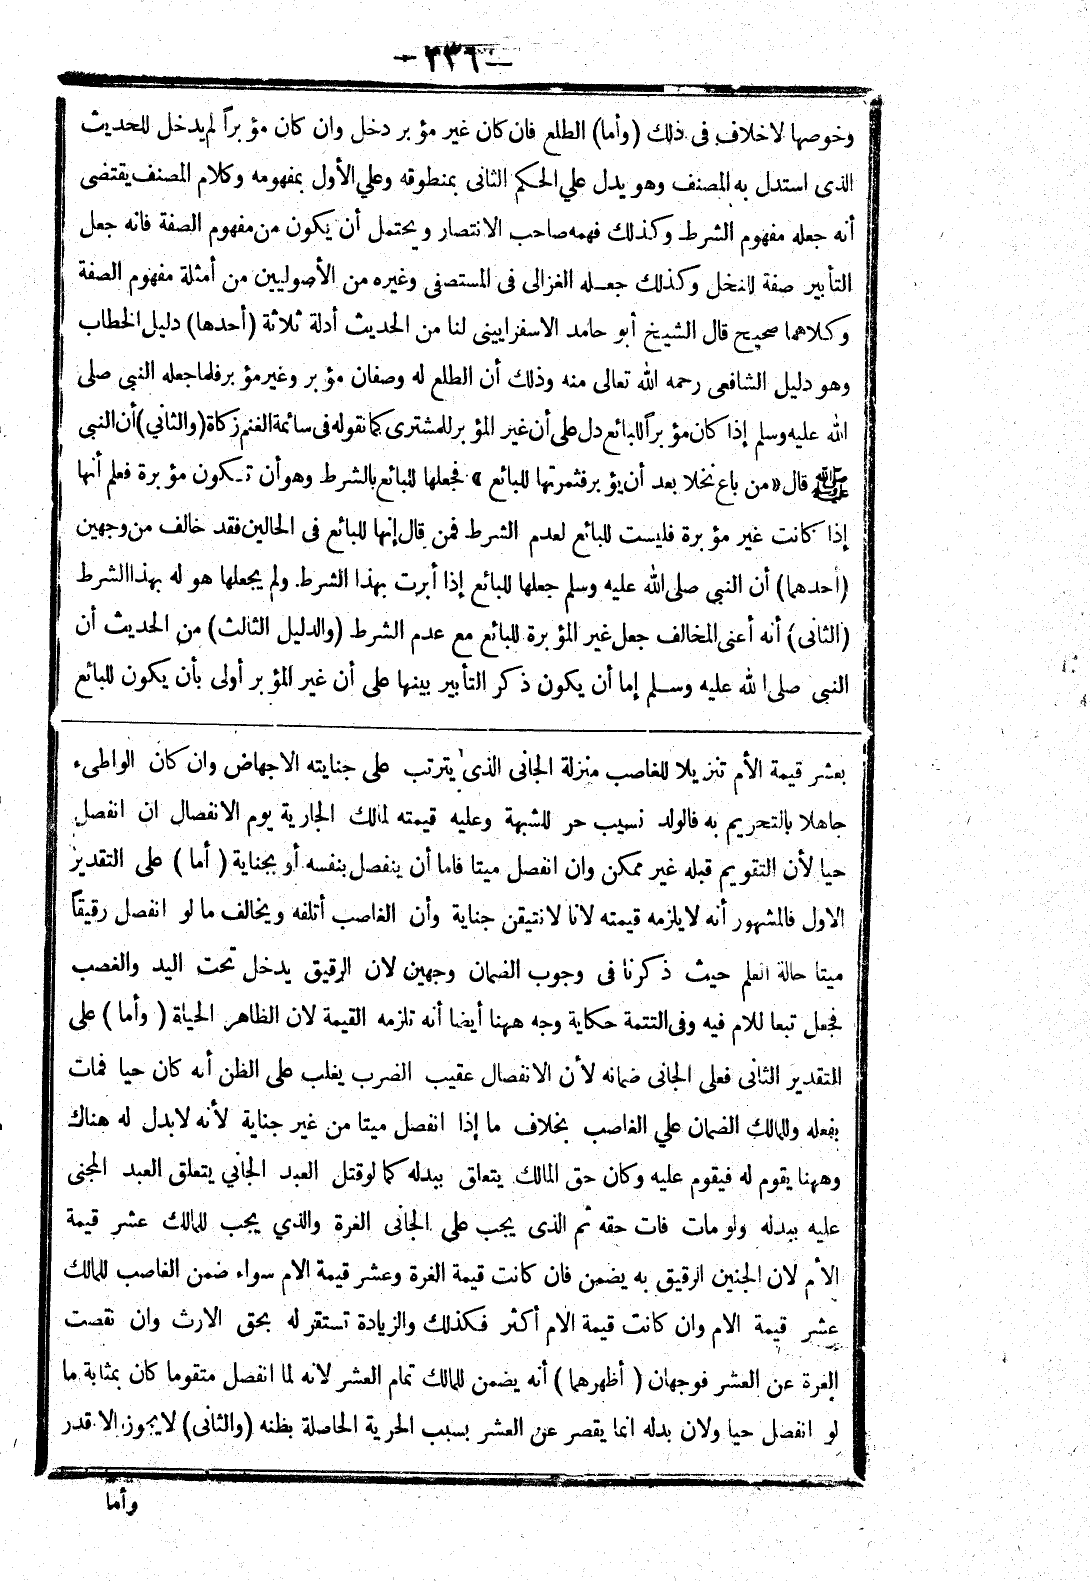 -٣٣٦-
وخوصها لاخلاف فى ذلك (وأما) الطلع فان كان غير مؤبر دخل وان كان مؤبراً لم يدخل للحديث
الذى استدل به المصنف وهو يدل علي الحكم الثانى بمنطوقه وعلي الأول بمفهومه وكلام المصنف يقتضى
أنه جعله مفهوم الشرط وكذلك فهمه صاحب الانتصار ويحتمل أن يكون من مفهوم الصفة فانه جعل
التأبير صفة للنخل وكذلك جعله الغزالى فى المستصفى وغيره من الأصوليين من أمثلة مفهوم الصفة
وكلاهما صحيح قال الشيخ أبو حامد الاسفرايينى لنا من الحديث أدلة ثلاثة (أحدها) دليل الخطاب
وهو دليل الشافعى رحمه الله تعالى منه وذلك أن الطلع له وصفان مؤبر وغير مؤبر فلما جعله النبى صلى
الله عليه وسلم إذا كان مؤبراً للبائع دل على أن غير المؤبر للمشترى كما نقوله فى سائمة الغنم زكاة (والثاني) أن النبى
ﷺ قال «من باع نخلا بعد أن يؤبر فثمرتها للبائع» فجعلها للبائع بالشرط وهو أن تكون مؤبرة فعلم أنها
إذا كانت غير مؤبرة فليست للبائع لعدم الشرط فمن قال إنها للبائع فى الحالين فقد خالف من وجهين
(أحدهما) أن النبي صلى الله عليه وسلم جعلها للبائع إذا أبرت بهذا الشرط ولم يجعلها هو له بهذا الشرط
(الثانى) أنه أعنى المخالف جعل غير المؤبرة للبائع مع عدم الشرط (والدليل الثالث) من الحديث أن
النبى صلى الله عليه وسلم إما أن يكون ذكر التأبير بينها على أن غير المؤبر أولى بأن يكون للبائع
بعشر قيمة الأم تنزيلا للغاصب منزلة الجانى الذى يترتب على جنايته الاجهاض وان كان الواطىء
جاهلا بالتحريم به فالولد نسيب حر للشبهة وعليه قيمته لمالك الجارية يوم الانفصال ان انفصل
حيا لأن التقويم قبله غير ممكن وان انفصل ميتا فاما أن ينفصل بنفسه أو بجناية (أما) على التقدير
الاول فالمشهور أنه لا يلزمه قيمته لانا لا نتيقن جناية وأن الغاصب أتلفه ويخالف ما لو انفصل رقيقاً
ميتا حالة العلم حيث ذكرنا فى وجوب الضمان وجهين لان الرقيق يدخل تحت اليد والغصب
فجعل تبعا للام فيه وفى التتمة حكاية وجه ههنا أيضا أنه تلزمه القيمة لان الظاهر الحياة (وأما) على
التقدير الثانى فعلى الجانى ضمانه لأن الانفصال عقيب الضرب يغلب على الظن أنه كان حيا فمات
بفعله وللمالك الضمان علي الغاصب بخلاف ما إذا انفصل ميتا من غير جناية لأنه لا بدل له هناك
وههنا يقوم له فيقوم عليه وكان حق المالك يتعلق ببدله كما لو قتل العبد الجاني يتعلق العبد المجنى
عليه ببدله ولو مات فات حقه ثم الذى يجب على الجانى الغرة والذي يجب للمالك عشر قيمة
الأم لان الجنين الرقيق به يضمن فان كانت قيمة الغرة وعشر قيمة الام سواء ضمن الغاصب للمالك
عشر قيمة الام وان كانت قيمة الام أكثر فكذلك والزيادة تستقر له بحق الارث وان نقصت
الغرة عن العشر فوجهان (أظهرهما) أنه يضمن للمالك تمام العشر لانه لما انفصل متقوما كان بمثابة ما
لو انفصل حيا ولان بدله انما يقصر عن العشر بسبب الحرية الحاصلة بظنه (والثانى) لا يجوز الا قدر
وأما